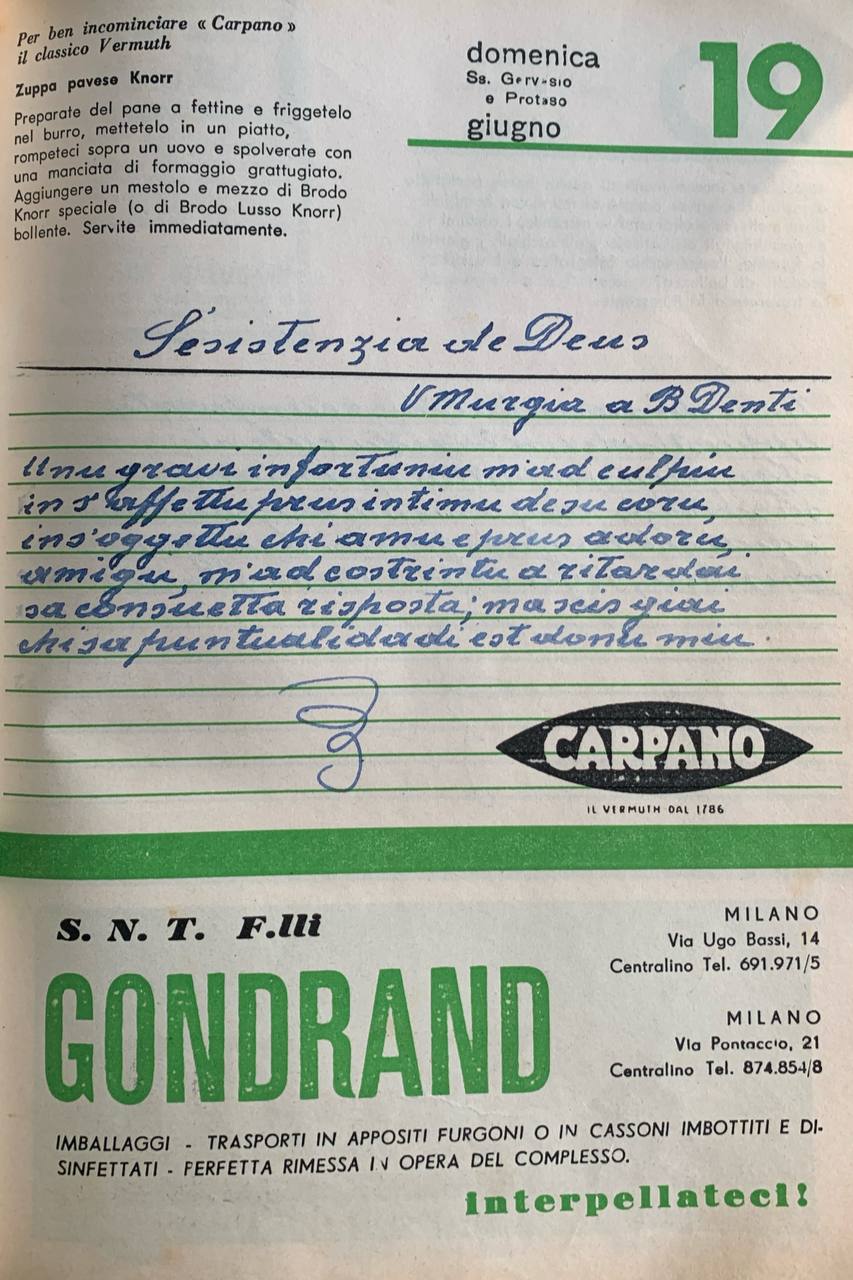 Per ben incominciare « Carpano »
il classico Vermuth
Zuppa pavese Knorr
Preparate del pane a fettine e friggetelo
nel burro, mettetelo in un piatto,
rompeteci sopra un uovo e spolverate con
una manciata di formaggio grattugiato.
Aggiungere un mestolo e mezzo di Brodo
Knorr speciale (o di Brodo Lusso Knorr)
bollente. Servite immediatamente.
domenica
Ss. Gervasio
e Protaso
giugno
19
S'esistenzia de Deus
V Murgia a B Denti
Unu gravi infortuniu m'ad culpiu
in s'affettu prus intimu de su coru,
in s'oggettu chi amu e prus adoru,
amigu, m'ad costrintu a ritardai
sa consuetta risposta; ma scis giai
chi sa puntualidadi est donu miu.
CARPANO
IL VERMUTH DAL 1786
S. N. T. F.lli
GONDRAND
MILANO
Via Ugo Bassi, 14
Centralino Tel. 691.971/5
MILANO
Via Pontaccio, 21
Centralino Tel. 874.854/8
IMBALLAGGI - TRASPORTI IN APPOSITI FURGONI O IN CASSONI IMBOTTITI E DI-
SINFETTATI - PERFETTA RIMESSA IN OPERA DEL COMPLESSO.
interpellateci!